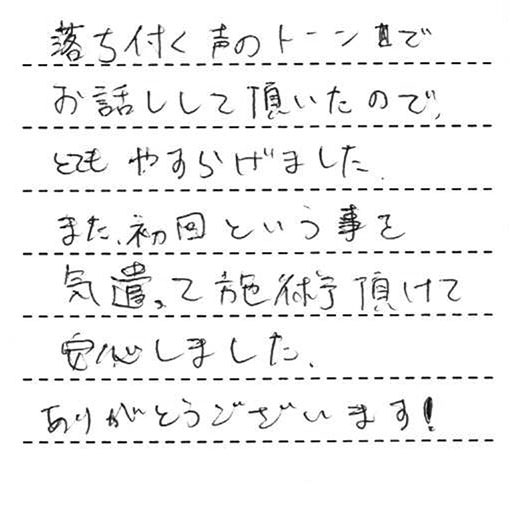 落ち付く声のトーンで
お話しして頂いたので、
とてもやすらげました。
また、初回という事を
気遣って施術頂けて
安心しました。
ありがとうございます!